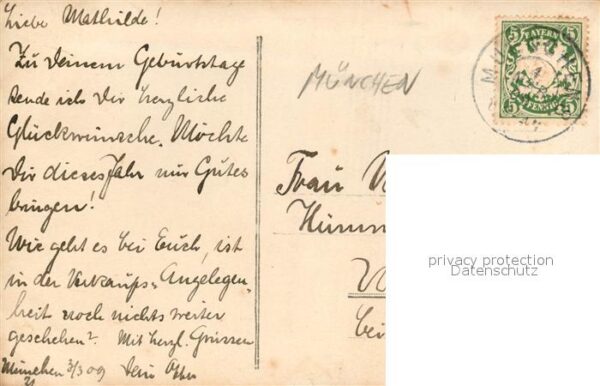 Liebe Mathilde!
Zu Deinem Geburtstage
sende ich Dir herzliche
Glückwünsche. Möchte
Dir dieses Jahr nur Gutes
bringen!
Wie geht es bei Euch, ist
in der Verkaufs-Angelegen-
heit noch nichts weiter
geschehen? Mit herzl. Grüssen
München 3/3 09 Dein
MÜNCHEN
BAYERN
5 5
5 PFENNIG 5
MÜNCHEN
Frau
Himm
bei
privacy protection
Datenschutz